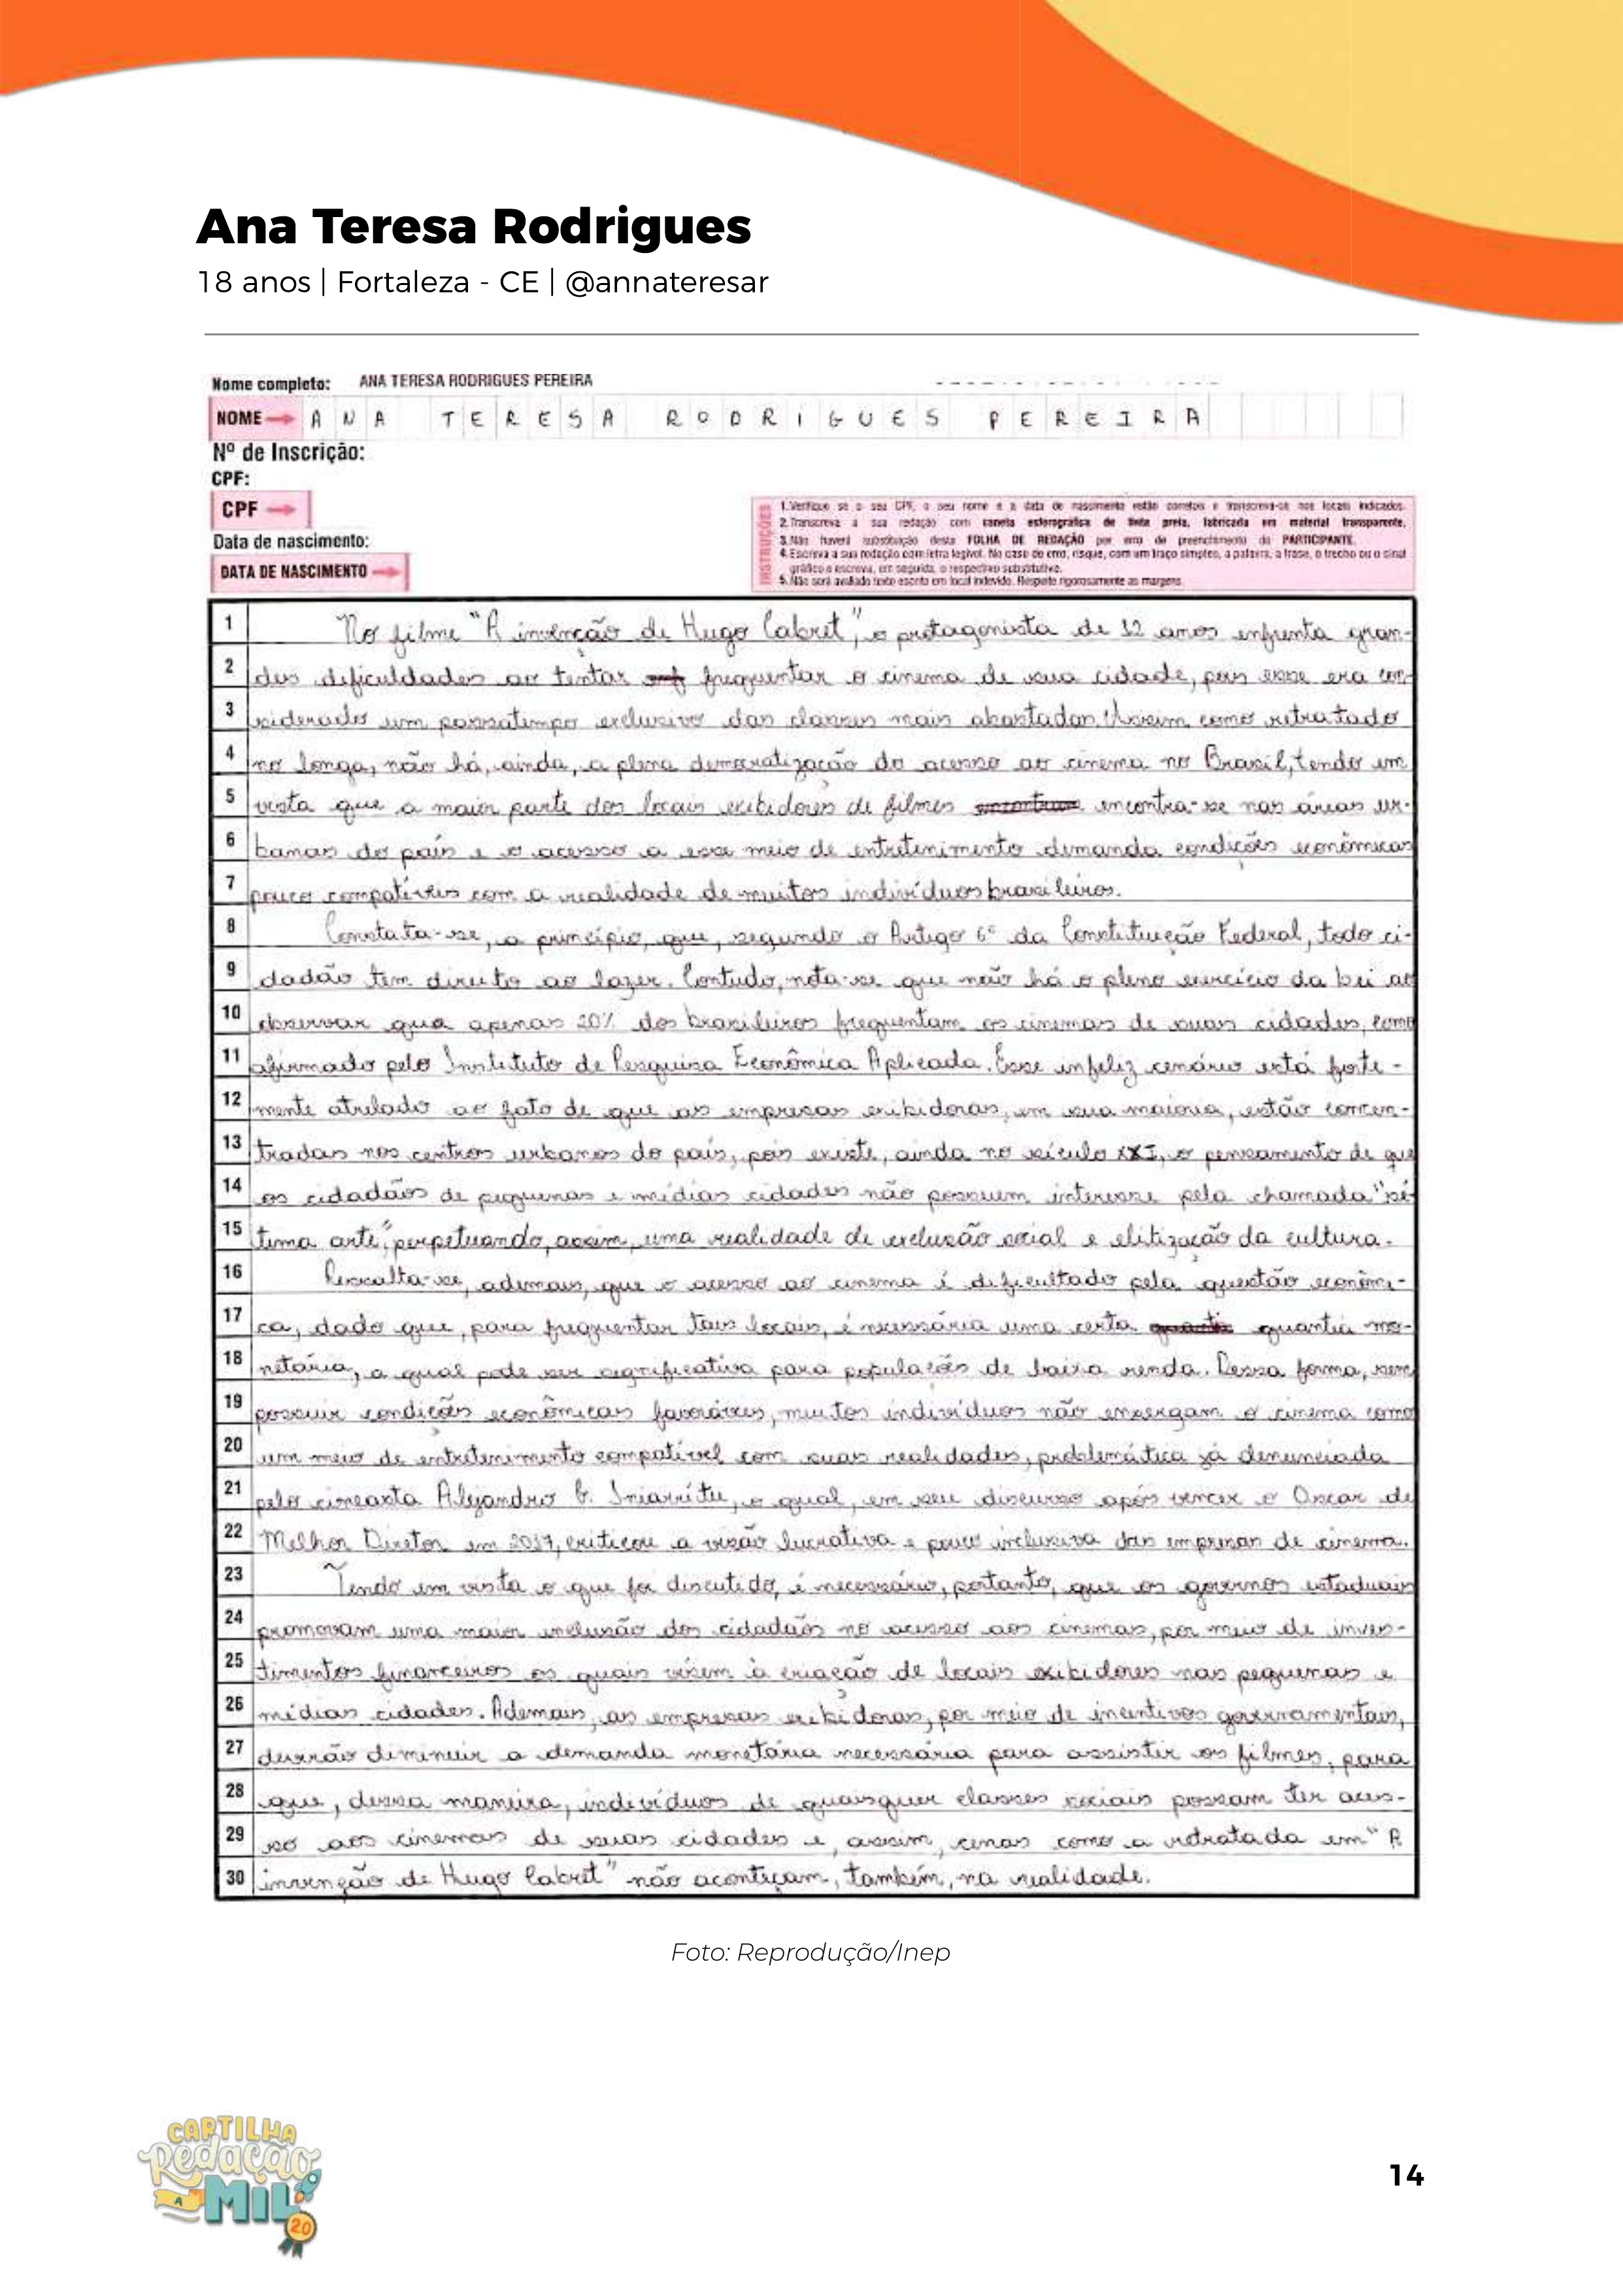 Ana Teresa Rodrigues
18 anos | Fortaleza - CE | @annateresar
Nome completo: ANA TERESA RODRIGUES PEREIRA
NOME ANA TERESA RODRIGUES PEREIRA
Nº de Inscrição:
CPF:
CPF
Data de nascimento:
DATA DE NASCIMENTO
INSTRUÇÕES
1. Verifique se o seu CPF, o seu nome e a data de nascimento estão corretos e transcreva-os nos locais indicados.
2. Transcreva a sua redação com caneta esferográfica de tinta preta, fabricada em material transparente.
3. Não haverá substituição desta FOLHA DE REDAÇÃO por erro de preenchimento do PARTICIPANTE.
4. Escreva a sua redação com letra legível. No caso de erro, risque, com um traço simples, a palavra, a frase, o trecho ou o sinal
gráfico e escreva, em seguida, o respectivo substitutivo.
5. Não será avaliado texto escrito em local indevido. Respeite rigorosamente as margens.
1 No filme "A invenção de Hugo Cabret", o protagonista de 12 anos enfrenta gran-
2 des dificuldades ao tentar frequentar o cinema de sua cidade, pois esse era con-
3 siderado um passatempo exclusivo das classes mais abastadas. Assim como retratado
4 no longa, não há, ainda, a plena democratização do acesso ao cinema no Brasil, tendo em
5 vista que a maior parte dos locais exibidores de filmes encontra-se nas áreas ur-
6 banas do país e o acesso a esse meio de entretenimento demanda condições econômicas
7 pouco compatíveis com a realidade de muitos indivíduos brasileiros.
8 Constata-se, a princípio, que, segundo o Artigo 6º da Constituição Federal, todo ci-
9 dadão tem direito ao lazer. Contudo, nota-se que não há o pleno exercício da lei ao
10 observar que apenas 20% dos brasileiros frequentam os cinemas de suas cidades, como
11 afirmado pelo Instituto de Pesquisa Econômica Aplicada. Esse infeliz cenário está forte-
12 mente atrelado ao fato de que as empresas exibidoras, em sua maioria, estão concen-
13 tradas nos centros urbanos do país, pois existe, ainda no século XXI, o pensamento de que
14 os cidadãos de pequenas e médias cidades não possuem interesse pela chamada "sé-
15 tima arte", perpetuando, assim, uma realidade de exclusão social e elitização da cultura.
16 Ressalta-se, ademais, que o acesso ao cinema é dificultado pela questão econômi-
17 ca, dado que, para frequentar tais locais, é necessária uma certa quantia mo-
18 netária, a qual pode ser significativa para populações de baixa renda. Dessa forma, sem
19 possuir condições econômicas favoráveis, muitos indivíduos não enxergam o cinema como
20 um meio de entretenimento compatível com suas realidades, problemática já denunciada
21 pelo cineasta Alejandro G. Iniarritu, o qual, em seu discurso após vencer o Oscar de
22 Melhor Diretor em 2017, criticou a visão lucrativa e pouco inclusiva das empresas de cinema.
23 Tendo em vista o que foi discutido, é necessário, portanto, que os governos estaduais
24 promovam uma maior inclusão dos cidadãos no acesso aos cinemas, por meio de inves-
25 timentos financeiros os quais visem à criação de locais exibidores nas pequenas e
26 médias cidades. Ademais, as empresas exibidoras, por meio de incentivos governamentais,
27 deverão diminuir a demanda monetária necessária para assistir os filmes, para
28 que, dessa maneira, indivíduos de quaisquer classes sociais possam ter aces-
29 so aos cinemas de suas cidades e, assim, cenas como a retratada em "A
30 invenção de Hugo Cabret" não aconteçam, também, na realidade.
Foto: Reprodução/Inep
CARTILHA
Redação
A MIL
20
14